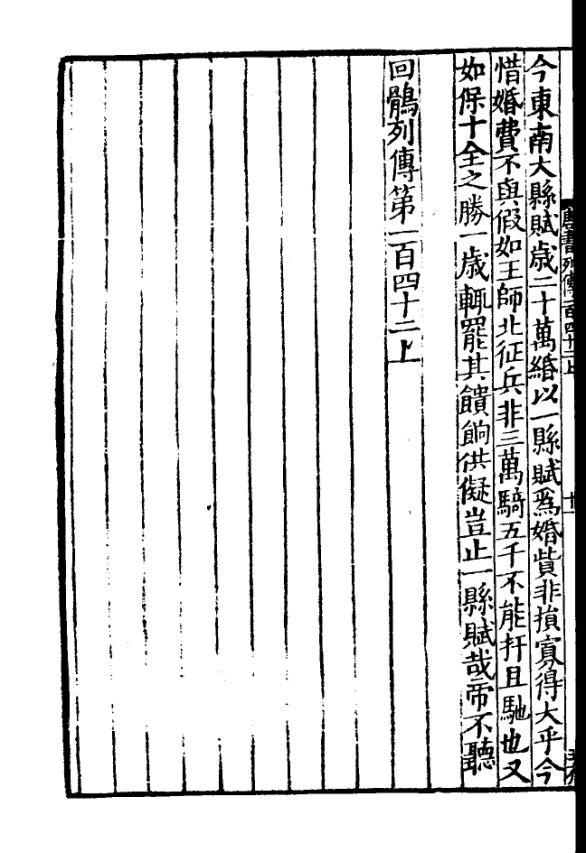 今東南大縣賦歲二十萬緡以一縣賦爲婚貲非損寡得大乎今
惜婚費不與假如王師北征兵非三萬騎五千不能扞且馳也又
如保十全之勝一歲輒罷其饋餉供儗豈止一縣賦哉帝不聽
回鶻列傳第一百四十二上